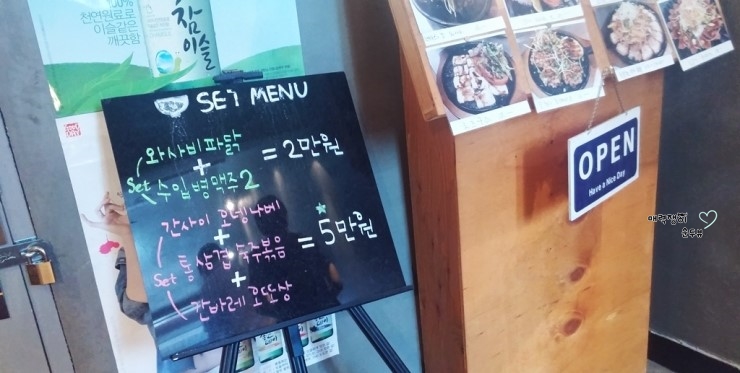 천연원료로
이슬같은
깨끗함
참
이슬
SET MENU
와사비파닭
+
= 2만원
Set 수입병맥주2
간사이 호넹나베
+
통삼겹 숙주볶음
= 5만원
+
Set
간바레 오또상
OPEN
Have a Nice Day
매력맹삐
순두뷰